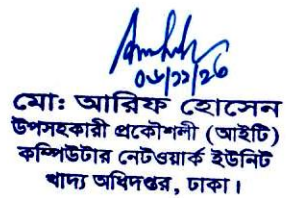 ০৬/১১/২৫
মো: আরিফ হোসেন
উপসহকারী প্রকৌশলী (আইটি)
কম্পিউটার নেটওয়ার্ক ইউনিট
খাদ্য অধিদপ্তর, ঢাকা।